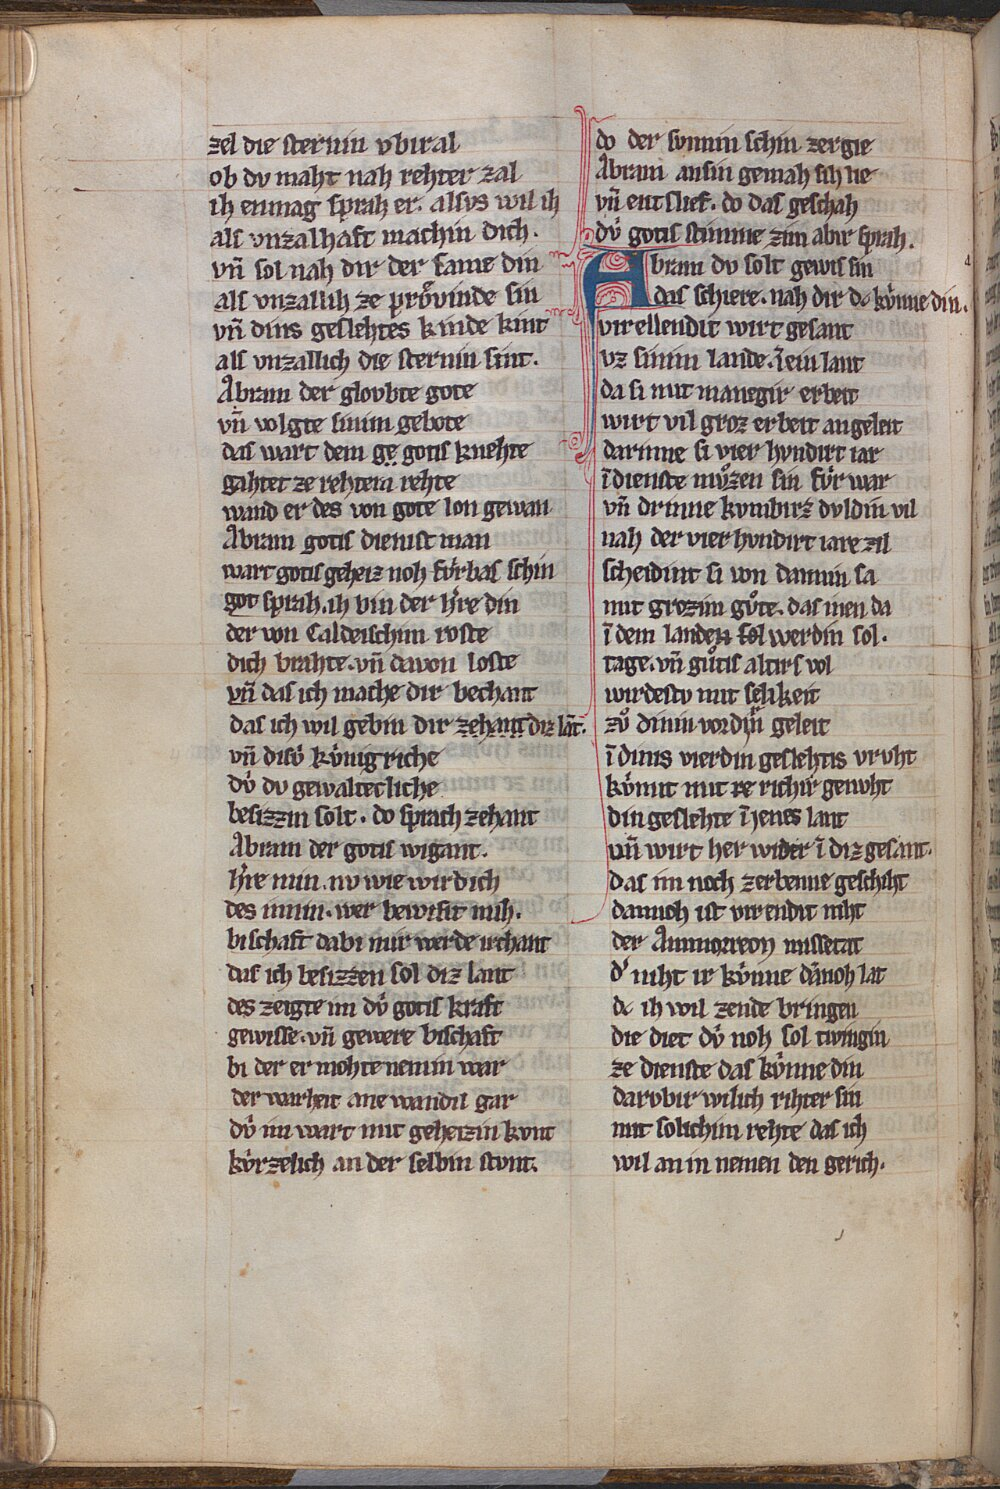 zel die sternin vbiral
ob dv maht nah rehter zal
ih enmag sprah er. alsvs wil ih
als vnzalhaft machin dich.
vn̄ sol nah dir der same din
als vnzallih ze prov̊inde sin
vn̄ dins geslehtes kinde kint
als vnzallich die sternin sint.
Abram der glovbte gote
vn̄ volgte sinim gebote
das wart dem gotis knehte
gahtet ze rehtem rehte
wand er des von gote lon gewan
Abram gotis dienist man
wart gotis geheiz noh fv̊rbas schin
got sprah. ih bin der h̓re din
der von Caldeischim roste
dich brahte. vn̄ davon loste
vn̄ das ich mache dir bechant
das ich wil gebin dir zehant diz lāt.
vn̄ disv̊ kv̊nigriche
dv̊ dv gewaltecliche
besizzin solt. do sprach zehant
Abram der gotis wigant.
h̓re min. nv wie wird ich
des innin. wer bewisit mih.
bischaft dabi mir werde irchant
das ich besizzen sol diz lant
des zeigte im dv̊ gotis kraft
gewisse. vn̄ gewere bischaft
bi der er mohte nemin war
der warheit ane wandil gar
dv̊ im wart mit geheizin kvnt
kv̊rzelich an der selbin stvnt.
do der svnnin schin zergie
Abram ansin gemah sih lie
vn̄ entslief. do das geschah
dv̊ gotis stimme zim abir sprah.
Abram dv solt gewis sin
das schiere. nah dir dc kv̊nne din.
virellendit wirt gesant
vz sinim lande. īein lant
da si mit manegir erbeit
wirt vil groz erbeit angeleit
darinne si vier hvndirt iar
īdienste mv̊zen sin fv̊r war
vn̄ drinne kvmbirs dvldin vil
nah der vier hvndirt iare zil
scheidint si von dannin sa
mit grozim gv̊te. das inen da
ī dem lande sol werdin sol.
tage. vn̄ gv̊tis altirs vol
wirdestv mit selikeit
zv̊ dinin vordir̄n geleit
ī dinis vierdin geslehtis vrvht
kv̊mit mit richir genvht
din geslehte ī ienes lant
vn̄ wirt her wider ī diz gesant.
das im noch zerbenne geschiht
dannoh ist virendit niht
der Ammorreoy missetat
d̓ niht ir kv̊nne dānoh lat
dc ih wil zende bringen
die diet dv̊ noh sol twingin
ze dienste das kv̊nne din
darvbir wilich rihter sin
mit solichim rehte das ich
wil an in nemen den gerich.